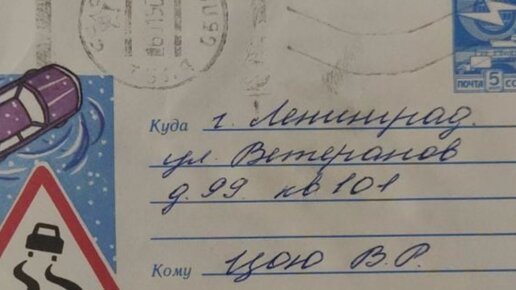 ПОЧТА 5
Куда г. Ленинград.
ул. Ветеранов
д. 99. кв. 101
Кому Цою В.Р.